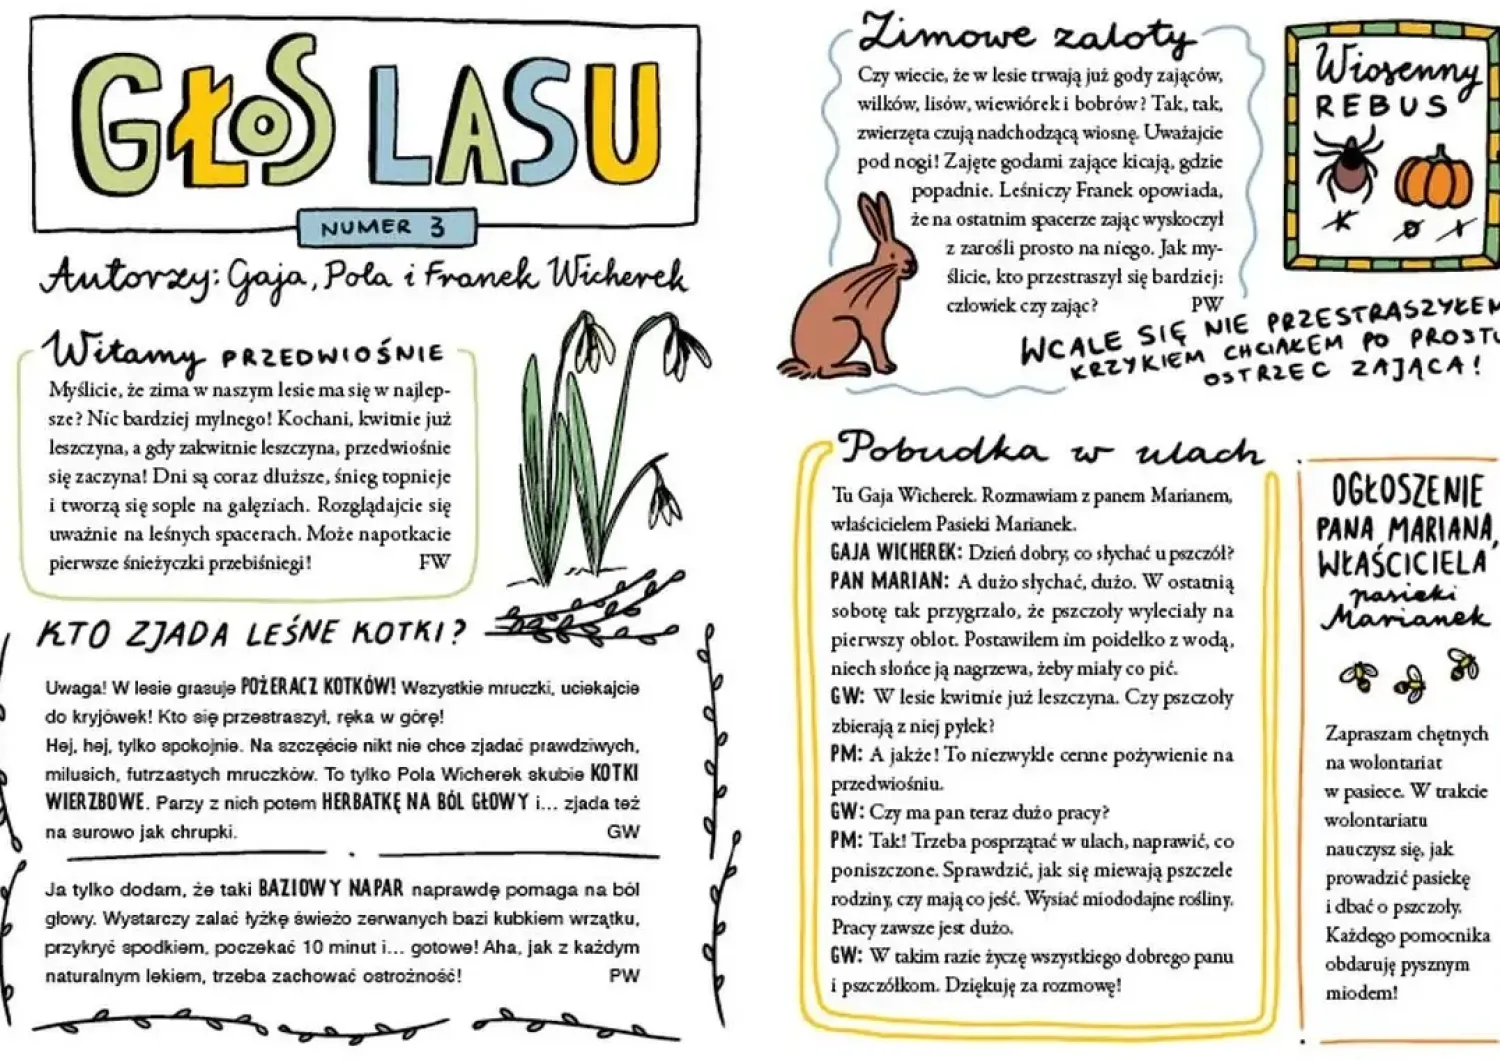 GŁOS LASU
NUMER 3
Autorzy: Gaja, Pola i Franek Wicherek
Witamy PRZEDWIOŚNIE
Myślicie, że zima w naszym lesie ma się w najlep-
sze? Nic bardziej mylnego! Kochani, kwitnie już
leszczyna, a gdy zakwitnie leszczyna, przedwiośnie
się zaczyna! Dni są coraz dłuższe, śnieg topnieje
i tworzą się sople na gałęziach. Rozglądajcie się
uważnie na leśnych spacerach. Może napotkacie
pierwsze śnieżyczki przebiśniegi! FW
KTO ZJADA LEŚNE KOTKI?
Uwaga! W lesie grasuje POŻERACZ KOTKÓW! Wszystkie mruczki, uciekajcie
do kryjówek! Kto się przestraszył, ręka w górę!
Hej, hej, tylko spokojnie. Na szczęście nikt nie chce zjadać prawdziwych,
milusich, futrzastych mruczków. To tylko Pola Wicherek skubie KOTKI
WIERZBOWE. Parzy z nich potem HERBATKĘ NA BÓL GŁOWY i... zjada też
na surowo jak chrupki. GW
Ja tylko dodam, że taki BAZIOWY NAPAR naprawdę pomaga na ból
głowy. Wystarczy zalać łyżkę świeżo zerwanych bazi kubkiem wrzątku,
przykryć spodkiem, poczekać 10 minut i... gotowe! Aha, jak z każdym
naturalnym lekiem, trzeba zachować ostrożność! PW
Zimowe zaloty
Czy wiecie, że w lesie trwają już gody zajęcy,
wilków, lisów, wiewiórek i bobrów? Tak, tak,
zwierzęta czują nadchodzącą wiosnę. Uważajcie
pod nogi! Zajęte godami zające kicają, gdzie
popadnie. Leśniczy Franek opowiada,
że na ostatnim spacerze zając wyskoczył
z zarośli prosto na niego. Jak my-
ślicie, kto przestraszył się bardziej:
człowiek czy zając? PW
WCALE SIĘ NIE PRZESTRASZYŁEM
KRZYKIEM CHCIAŁEM PO PROSTU
OSTRZEC ZAJĄCA!
Wiosenny
REBUS
K Ø I
Pobudka w ulach
Tu Gaja Wicherek. Rozmawiam z panem Marianem,
właścicielem Pasieki Marianek.
GAJA WICHEREK: Dzień dobry, co słychać u pszczół?
PAN MARIAN: A dużo słychać, dużo. W ostatnią
sobotę tak przygrzało, że pszczoły wyleciały na
pierwszy oblot. Postawiłem im poidełko z wodą,
niech słońce ją nagrzewa, żeby miały co pić.
GW: W lesie kwitnie już leszczyna. Czy pszczoły
zbierają z niej pyłek?
PM: A jakże! To niezwykle cenne pożywienie na
przedwiośniu.
GW: Czy ma pan teraz dużo pracy?
PM: Tak! Trzeba posprzątać w ulach, naprawić, co
poniszczone. Sprawdzić, jak się miewają pszczele
rodziny, czy mają co jeść. Wysiać miododajne rośliny.
Pracy zawsze jest dużo.
GW: W takim razie życzę wszystkiego dobrego panu
i pszczółkom. Dziękuję za rozmowę!
OGŁOSZENIE
PANA MARIANA,
WŁAŚCICIELA
pasieki
Marianek
Zapraszam chętnych
na wolontariat
w pasiece. W trakcie
wolontariatu
nauczysz się, jak
prowadzić pasiekę
i dbać o pszczoły.
Każdego pomocnika
obdaruję pysznym
miodem!